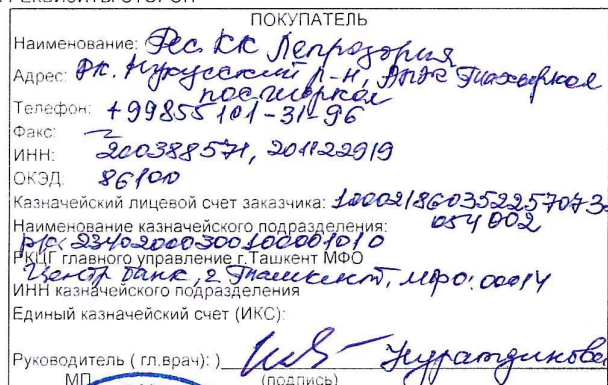 РЕКВИЗИТЫ СТОРОН
ПОКУПАТЕЛЬ
Наименование: Рес. КК Лепрозория
Адрес: РК. Нукусский р-н, АПЖ
пос
Телефон: +99855 101-31-96
Факс: —
ИНН: 200388571, 201122919
ОКЭД: 86100
Казначейский лицевой счет заказчика:
Наименование казначейского подразделения:
054002
р/с: 23402000300100001010
РКЦГ главного управление г.Ташкент МФО
Центр банк, г. Ташкент, мфо: 00014
ИНН казначейского подразделения
Единый казначейский счет (ИКС):
Руководитель ( гл.врач): )
МП (подпись)